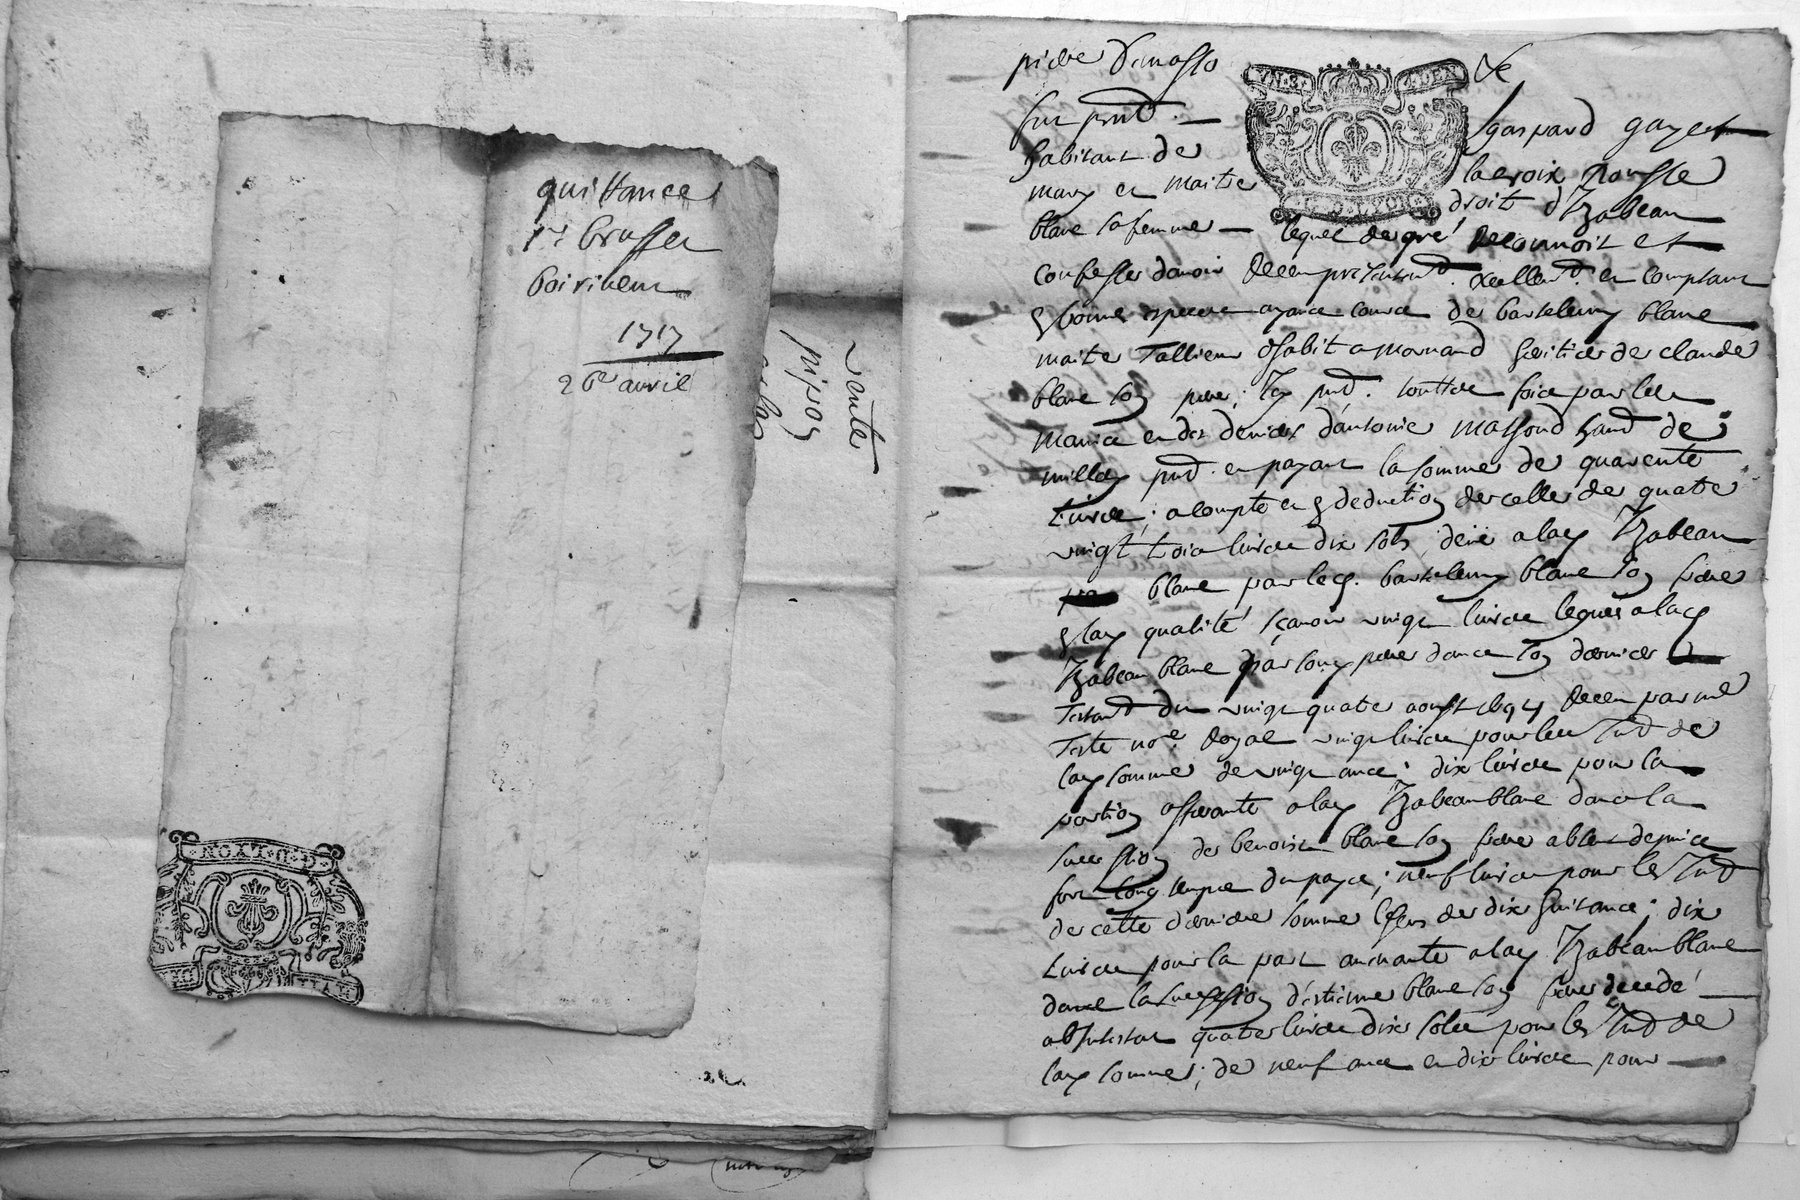 quittance
pr brosser
poirieux
1717
26e avril
vente
pison
G·D·LYON
pierre
VN·S· 4·DEN
fut pnt.
gaspard gayet
habitant de
la croix rousse
mary et maitre
droit d'Izabeau
blanc sa femme lequel de gré reconnoit et
confesse d'avoir receu presentemt. reellemt. et comptant
bonne espece ayant cours de bartelemy blanc
maitre Tallieur habit a mornand heritier de claude
blanc son pere, icy pnt. faite par les
mains et des deniers d'antoine massond hand de
millery pnt. et payant la somme de quarente
livres; a compte et deduction de celle de quatre
vingt trois livres dix sols, deüe a lad Izabeau
blanc par led. bartelemy blanc son frere
qualité sçavoir vingt livres legués a lad
Izabeau blanc par son pere dans son dernier
Testamt du vingt quatre aoust receu par me
Teste nore. Royal vingt livres pour les intd de
lad somme de vingt ans; dix livres pour la
portion afferante a lad Izabeau blanc dans la
succession de benoist blanc son frere absent depuis
fort long temps du pays; neuf livres pour les intd
de cette derniere somme de dix huit ans; dix
livres pour la part a lad Izabeau blanc
dans la succession d'estienne blanc son frere decedé
ab intestat quatre livres dix sols pour les intd de
lad somme; de neuf ans et dix livres pour